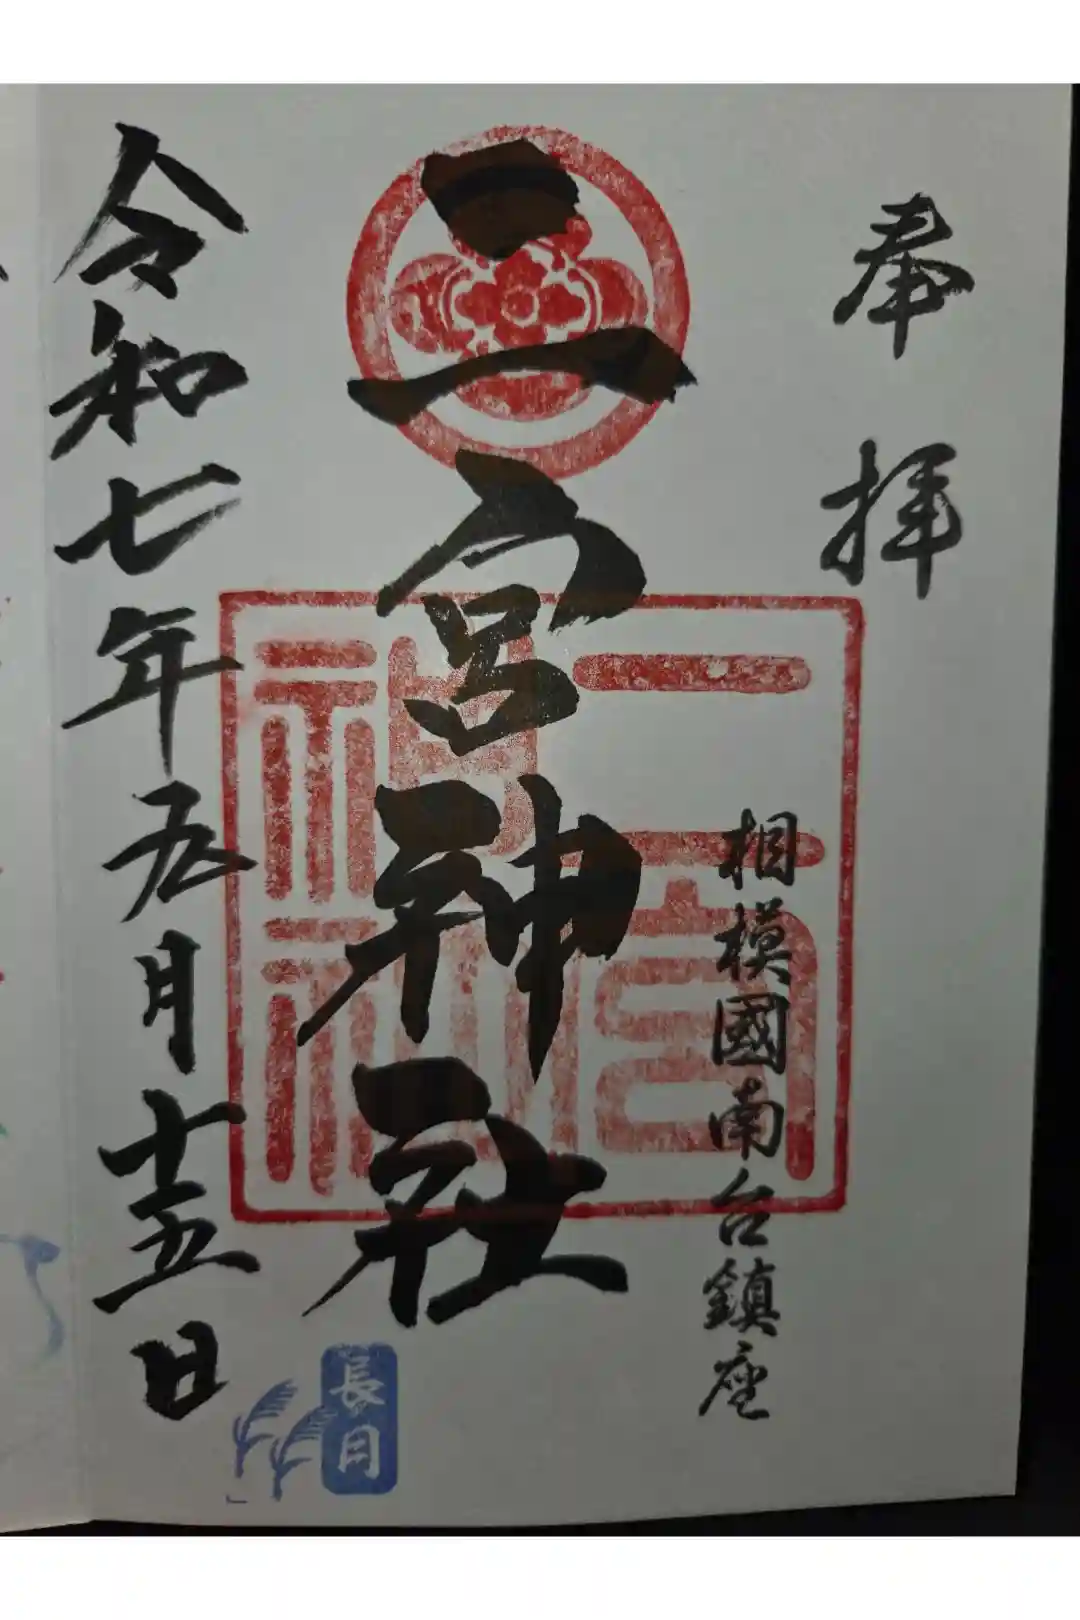 奉拝
相模國南台鎮座
二宮神社
二宮
神社
令和七年九月十五日
長月